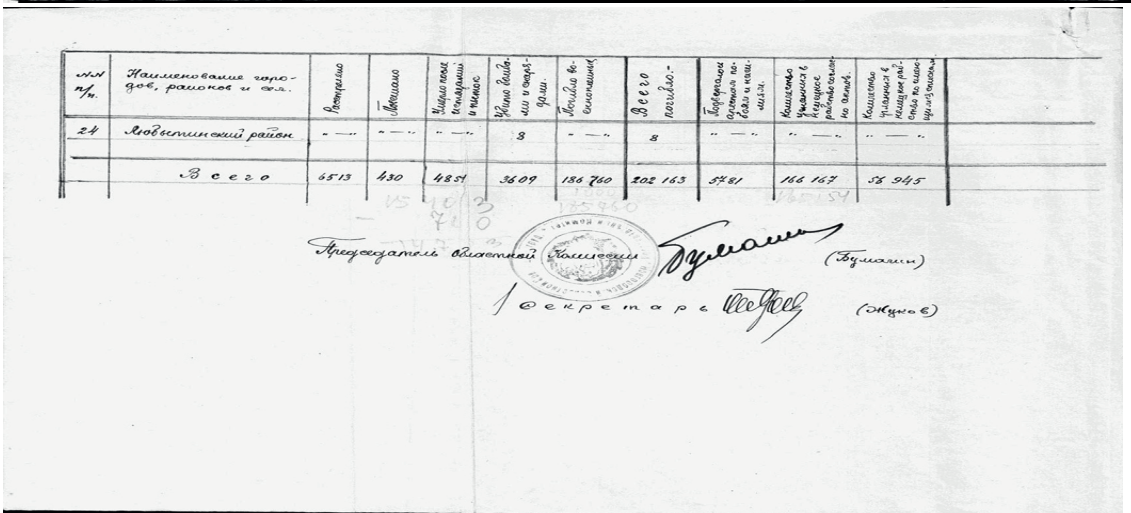 NN п/п.
Наименование горо-
дов, районов и сел.
Расстреляно
Повешено
Умерло после
истязаний
и пыток
Убито бомба-
ми и снаря-
дами.
Погибло во-
еннопленных
Всего
погибло.-
Подвергалось
арестам по-
боям и наси-
лиям.
Количество
угнанных в
немецкое
рабство соглас-
но актов.
Количество
угнанных в
немецкое раб-
ство по имею-
щимся спискам
24 Любытинский район. " — " " — " " — " 8 " — " 8 " — " " — " " — "
Всего 6513 430 4851 3609 186 760 202 163 5781 166 167 56 945
Председатель областной Комиссии (Бумагин)
Секретарь (Жуков)